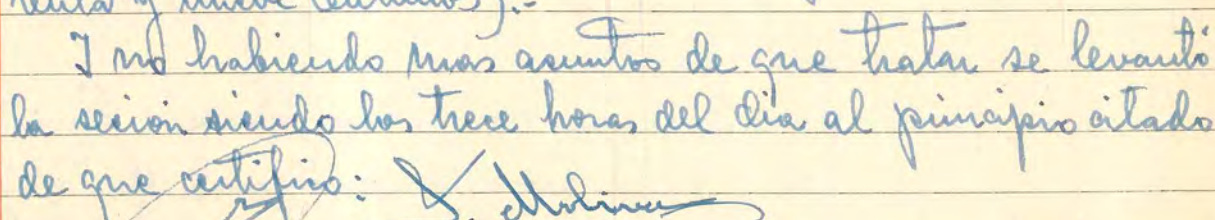 y nueve centimos).-
I no habiendo mas asuntos de que tratar se levantó
la secion siendo las trece horas del dia al principio citado
de que certifico: Molina